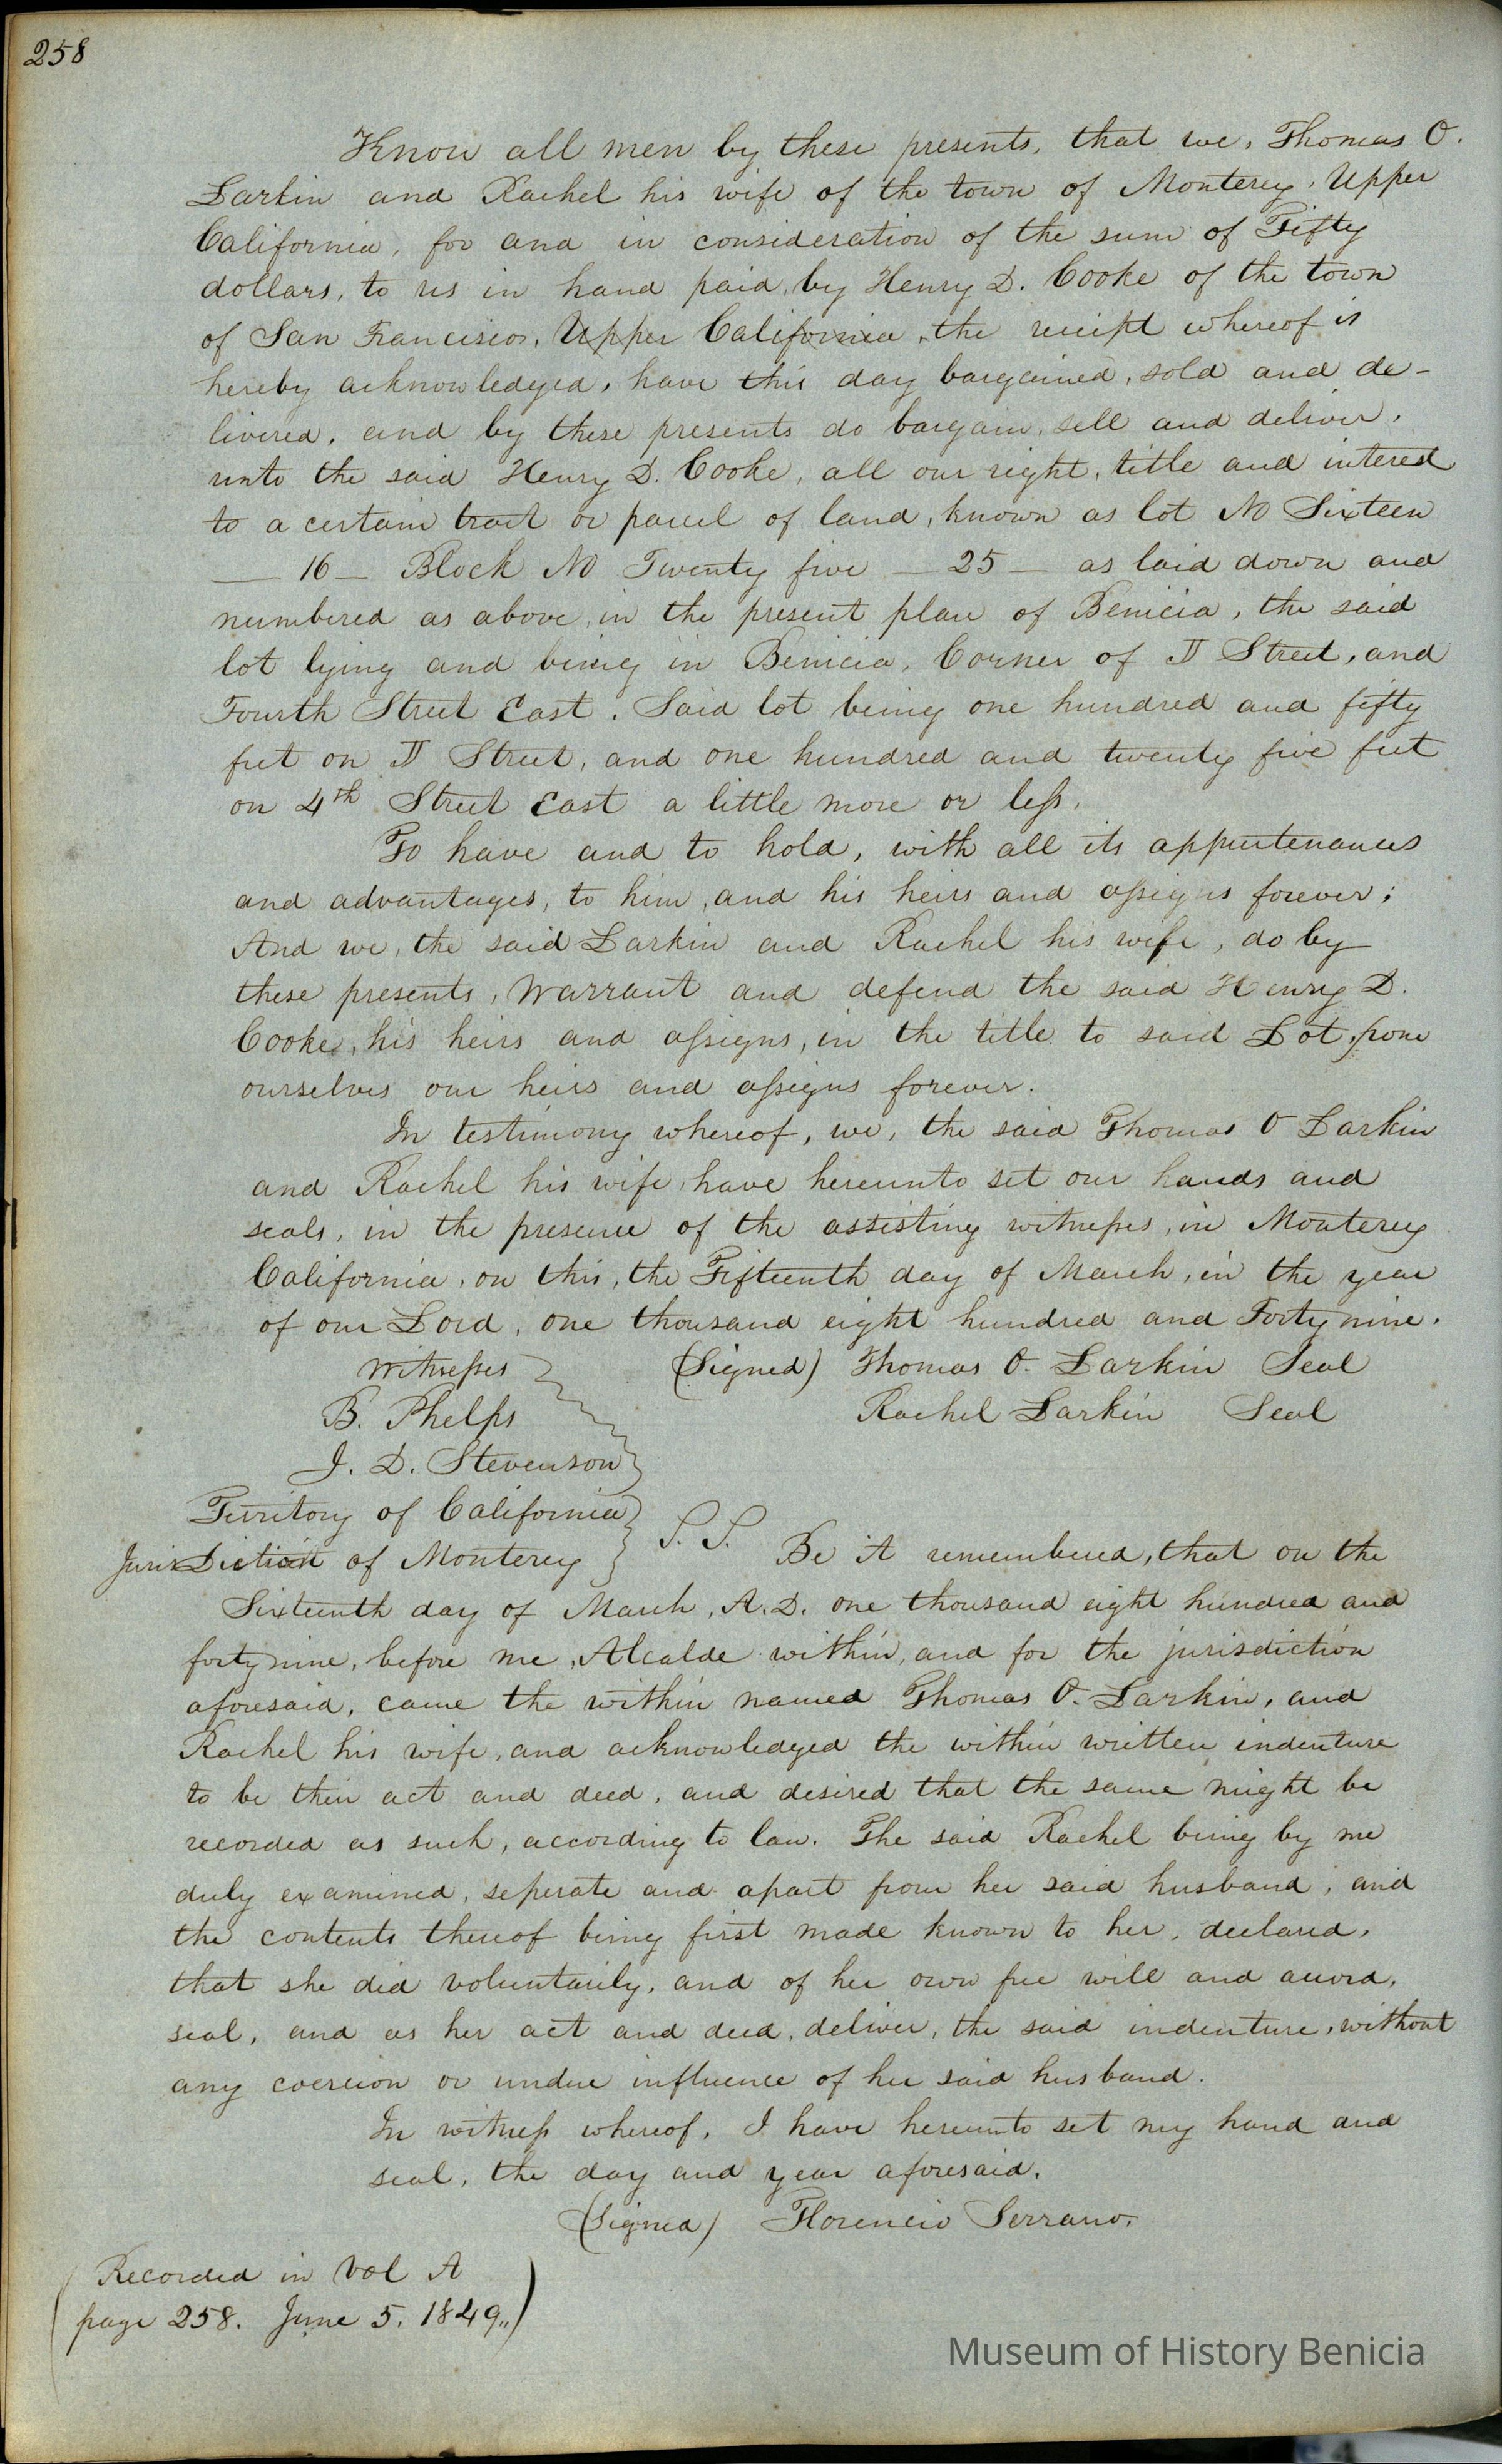 258
Know all men by these presents, that we, Thomas O.
Larkin and Rachel his wife of the town of Monterey, Upper
California, for and in consideration of the sum of Fifty
dollars, to us in hand paid, by Henry D. Cooke of the town
of San Francisco, Upper California, the receipt whereof is
hereby acknowledged, have this day bargained, sold and de-
livered, and by these presents do bargain, sell and deliver,
unto the said Henry D. Cooke, all our right, title and interest
to a certain tract or parcel of land, known as lot No Sixteen
— 16 — Block No Twenty five — 25 — as laid down and
numbered as above, in the present plan of Benicia, the said
lot lying and being in Benicia, Corner of J Street, and
Fourth Street East. Said lot being one hundred and fifty
feet on J Street, and one hundred and twenty five feet
on 4th Street East a little more or less.
To have and to hold, with all its appurtenances
and advantages, to him, and his heirs and assigns forever;
And we, the said Larkin and Rachel his wife, do by
these presents, Warrant and defend the said Henry D.
Cooke, his heirs and assigns, in the title to said Lot, from
ourselves our heirs and assigns forever.
In testimony whereof, we, the said Thomas O Larkin
and Rachel his wife, have hereunto set our hands and
seals, in the presence of the assisting witnesses, in Monterey
California, on this, the Fifteenth day of March, in the year
of our Lord, one thousand eight hundred and Forty nine.
Witnesses (Signed) Thomas O. Larkin Seal
B. Phelps Rachel Larkin Seal
J. D. Stevenson
Territory of California } S. S.
JurisDiction of Monterey } Be it remembered, that on the
Sixteenth day of March, A.D. one thousand eight hundred and
forty nine, before me, Alcalde within, and for the jurisdiction
aforesaid, came the within named Thomas O. Larkin, and
Rachel his wife, and acknowledged the within written indenture
to be their act and deed, and desired that the same might be
recorded as such, according to law. The said Rachel being by me
duly examined, seperate and apart from her said husband, and
the contents thereof being first made known to her, declared,
that she did voluntarily, and of her own free will and accord,
seal, and as her act and deed, deliver, the said indenture, without
any coercion or undue influence of her said husband.
In witness whereof, I have hereunto set my hand and
seal, the day and year aforesaid.
(Signed) Florencio Serrano.
(Recorded in Vol A
page 258. June 5. 1849.,)
Museum of History Benicia